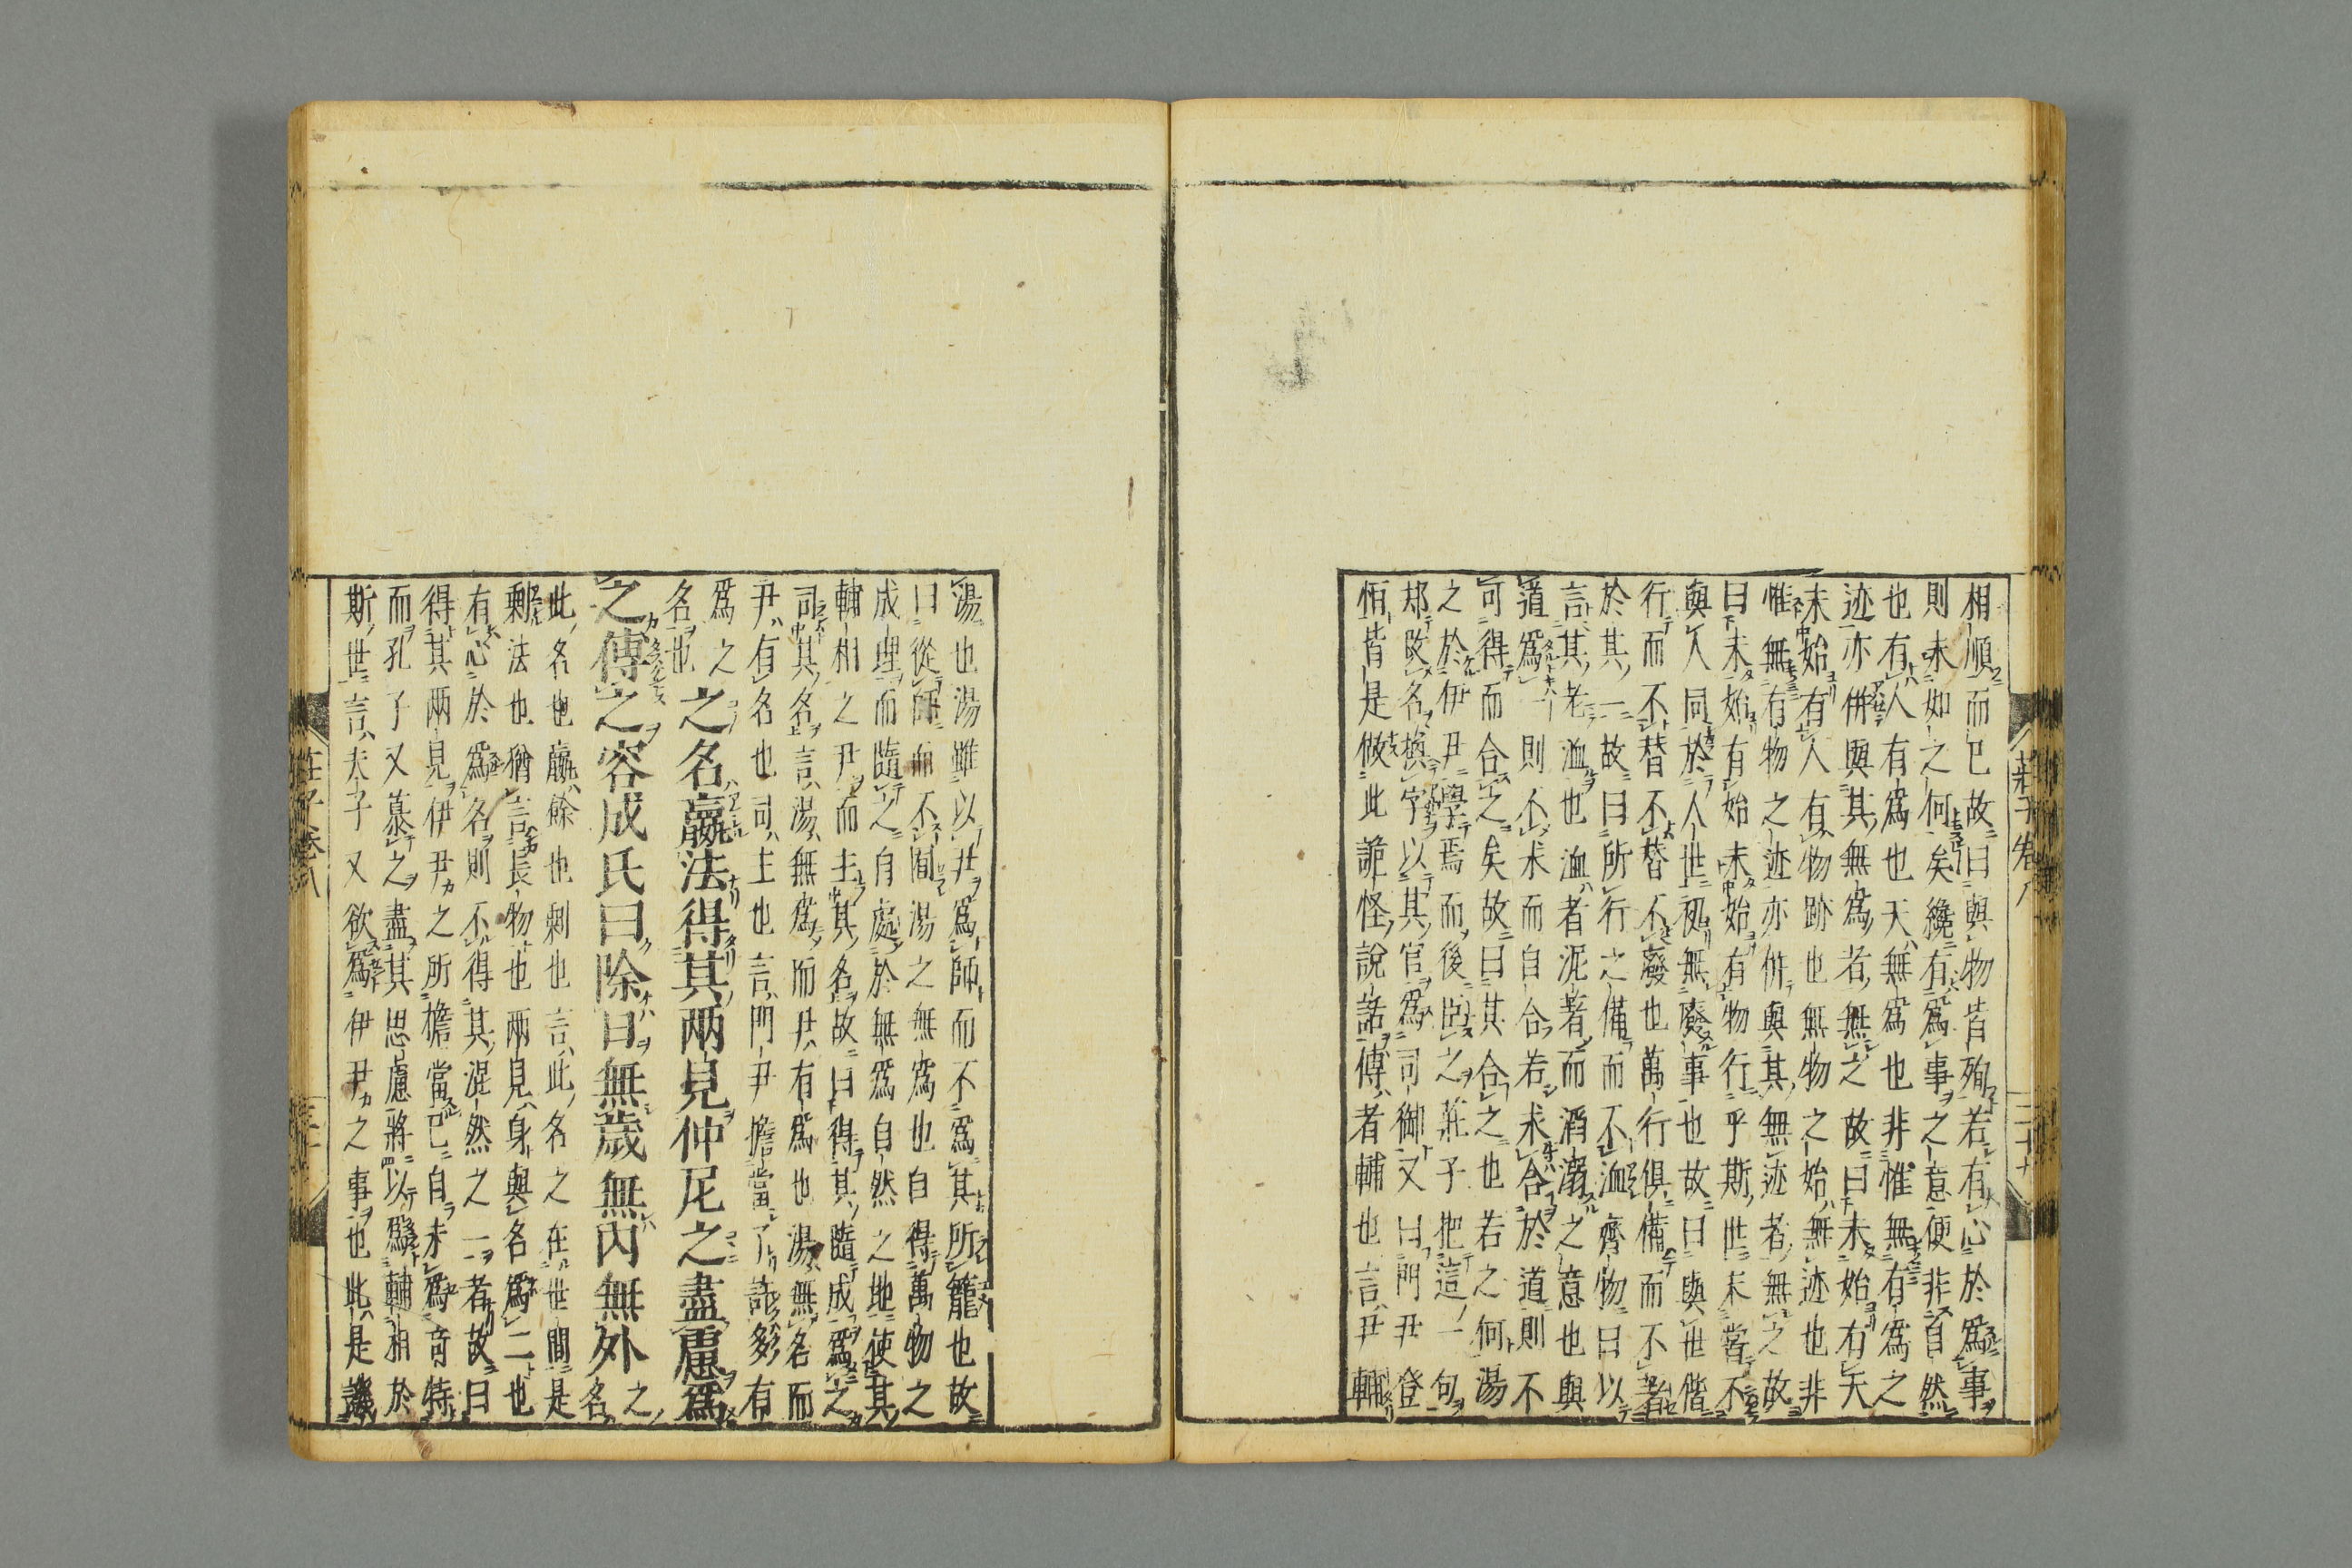 相順而已故曰與物皆殉若有心於爲事
則未如之何矣纔有爲事之意便非自然
也有人有爲也天無爲也非惟無有爲之
迹亦併與其無爲者無之故曰未始有天
未始有人有物跡也無物之始無迹也非
惟無有物之迹亦併與其無迹者無之故
曰未始有始未始有物行乎斯世未嘗不
與人同於人世初無廢事也故曰與世偕
行而不替不替不廢也萬行俱備而不著
於其一故曰所行之備而不洫齊物曰以
言其老洫也洫者泥著而滔溺之意也與
道爲一則不求而自合若求合於道則不
可得而合之矣故曰其合之也若之何湯
之於伊尹學焉而後臣之莊子把這一句
却改名換字以其官爲司御又曰門尹登
恒皆是做此詭怪說話傅者輔也言尹輔
莊子卷八
三十
湯也湯雖以尹爲師而不爲其所籠也故
曰從師而不囿湯之無爲也自得萬物之
成理而隨之自處於無爲自然之地使其
輔相之尹而主其名故曰得其隨成爲之
司其名言湯無爲而尹有爲也湯無名而
尹有名也司主也言門尹擔當了許多有
爲之
名也
之名嬴法得其兩見仲尼之盡慮爲
之傅之容成氏曰除日無歲無內無外
之
名
此名也嬴餘也剩也言此名之在世間是
剩法也猶言長物也兩見身與名爲二也
有心於爲名則不得其混然之一者故曰
得其兩見伊尹之所擔當已自未爲奇特
而孔子又慕之盡其思慮將以爲輔相於
斯世言夫子又欲爲伊尹之事也此是譏
莊子卷八